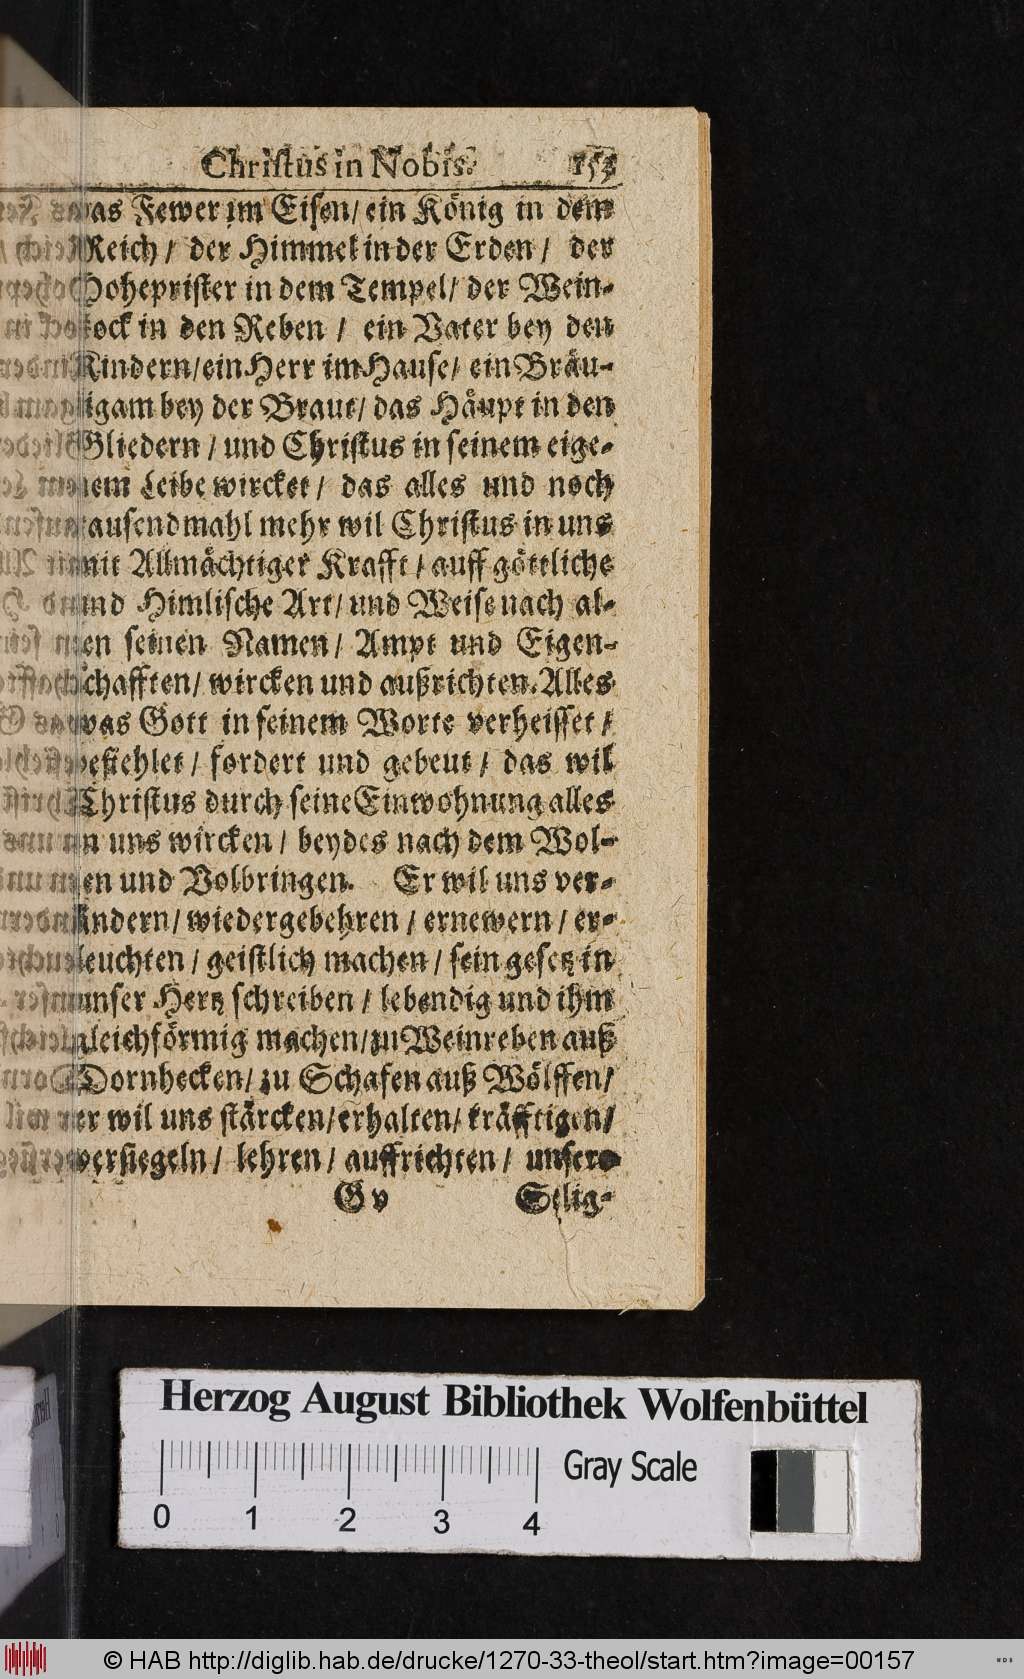 Christus in Nobis. 153
was Fewer im Eisen/ ein König in dem
Reich/ der Himmel in der Erden/ der
Hohepriſter in dem Tempel/ der Wein-
ſtock in den Reben/ ein Vater bey den
Kindern/ ein Herr im Hauſe/ ein Bräu-
tigam bey der Braut/ das Häupt in den
Gliedern/ und Chriſtus in ſeinem eige-
nem Leibe wircket/ das alles und noch
tauſendmahl mehr wil Chriſtus in uns
mit Allmächtiger Krafft/ auff göttliche
und Himliſche Art/ und Weiſe nach al-
len ſeinen Namen/ Ampt und Eigen-
ſchafften/ wircken und außrichten. Alles
was Gott in ſeinem Worte verheiſſet/
befiehlet/ fordert und gebeut/ das wil
Chriſtus durch ſeine Einwohnung alles
in uns wircken/ beydes nach dem Wol-
len und Volbringen. Er wil uns ver-
ändern/ wiedergebehren/ ernewern/ er-
leuchten/ geiſtlich machen/ ſein geſetz in
unſer Hertz ſchreiben/ lebendig und ihm
gleichförmig machen/ zu Weinreben auß
Dornhecken/ zu Schafen auß Wölffen/
er wil uns ſtärcken/ erhalten/ kräfftigen/
verſiegeln/ lehren/ auffrichten/ unſere
G v Selig-
Herzog August Bibliothek Wolfenbüttel
Gray Scale
0 1 2 3 4
© HAB http://diglib.hab.de/drucke/1270-33-theol/start.htm?image=00157